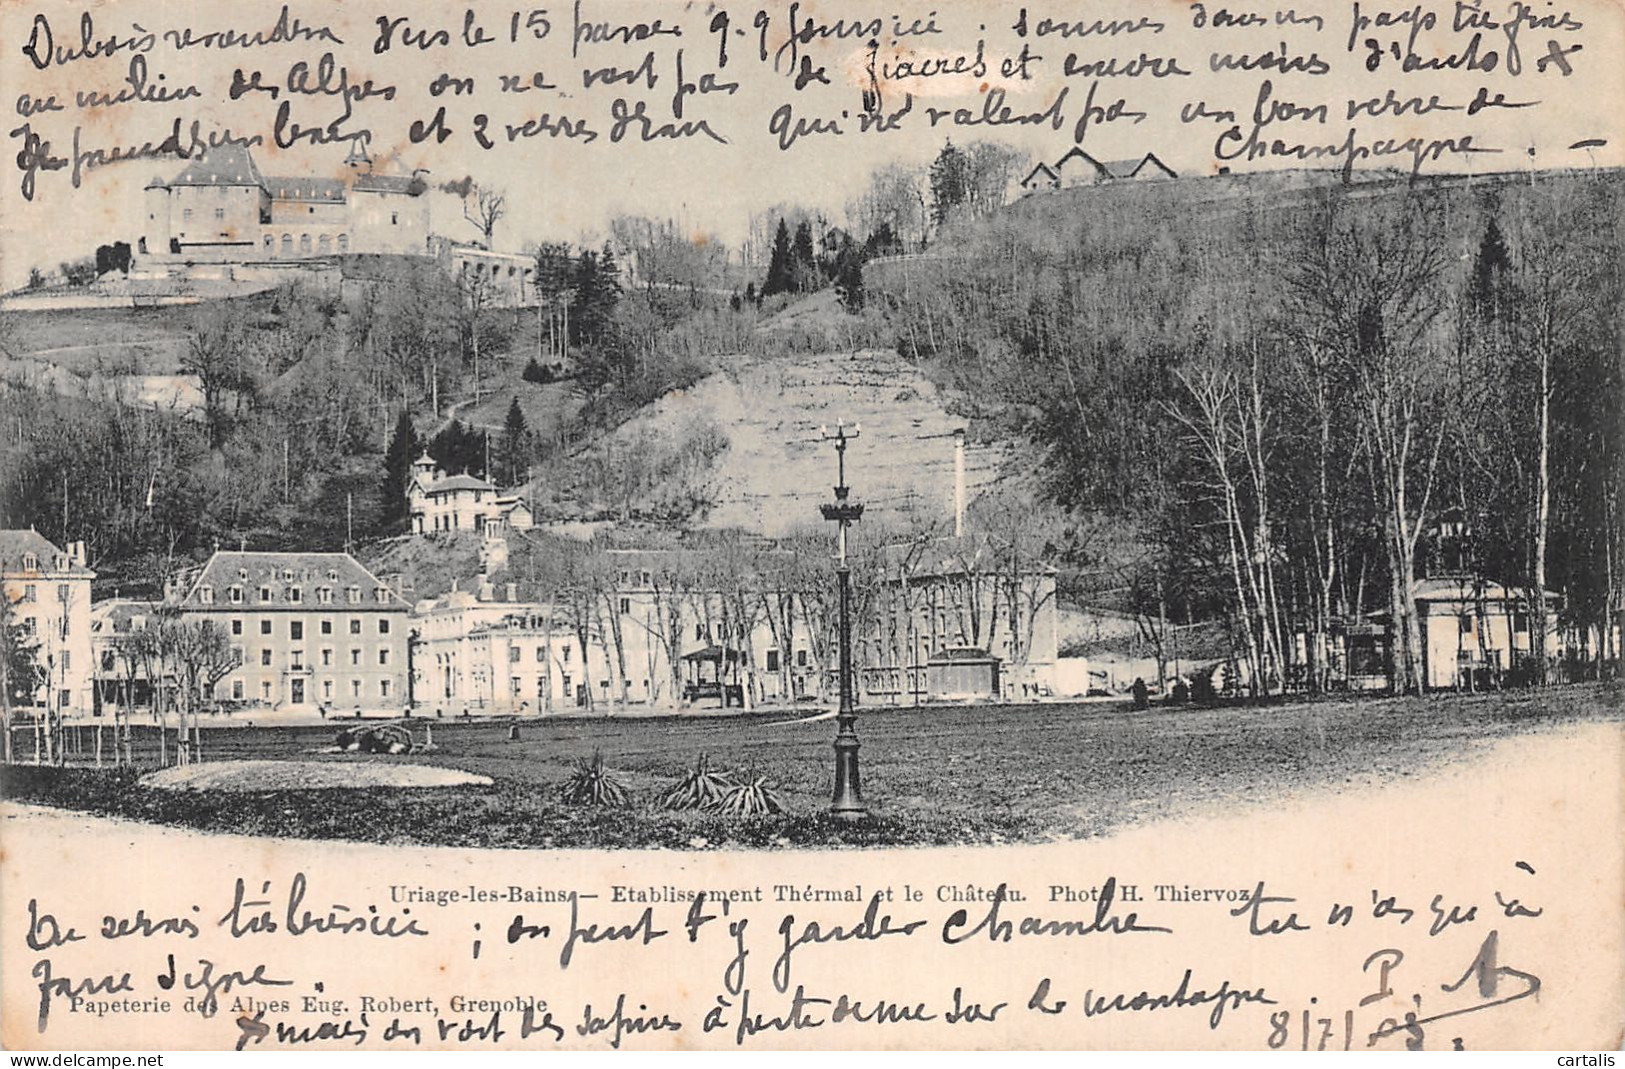 Dubois reviendra vers le 15 passer 9.9 jours ici. sommes dans un pays très
au milieu des Alpes on ne voit pas de fiacres et encore moins d'auto x
Je prends un bain et 2 verres d'eau qui ne valent pas un bon verre de
Champagne. —
Uriage-les-Bains — Etablissement Thérmal et le Château. Phot. H. Thiervoz
Tu serais très bien ici ; on peut t'y garder chambre tu n'as qu'à
faire signe.
Papeterie des Alpes Eug. Robert, Grenoble
x mais on voit des sapins à perte de vue sur la montagne. P.
8/7/03.
cartalis